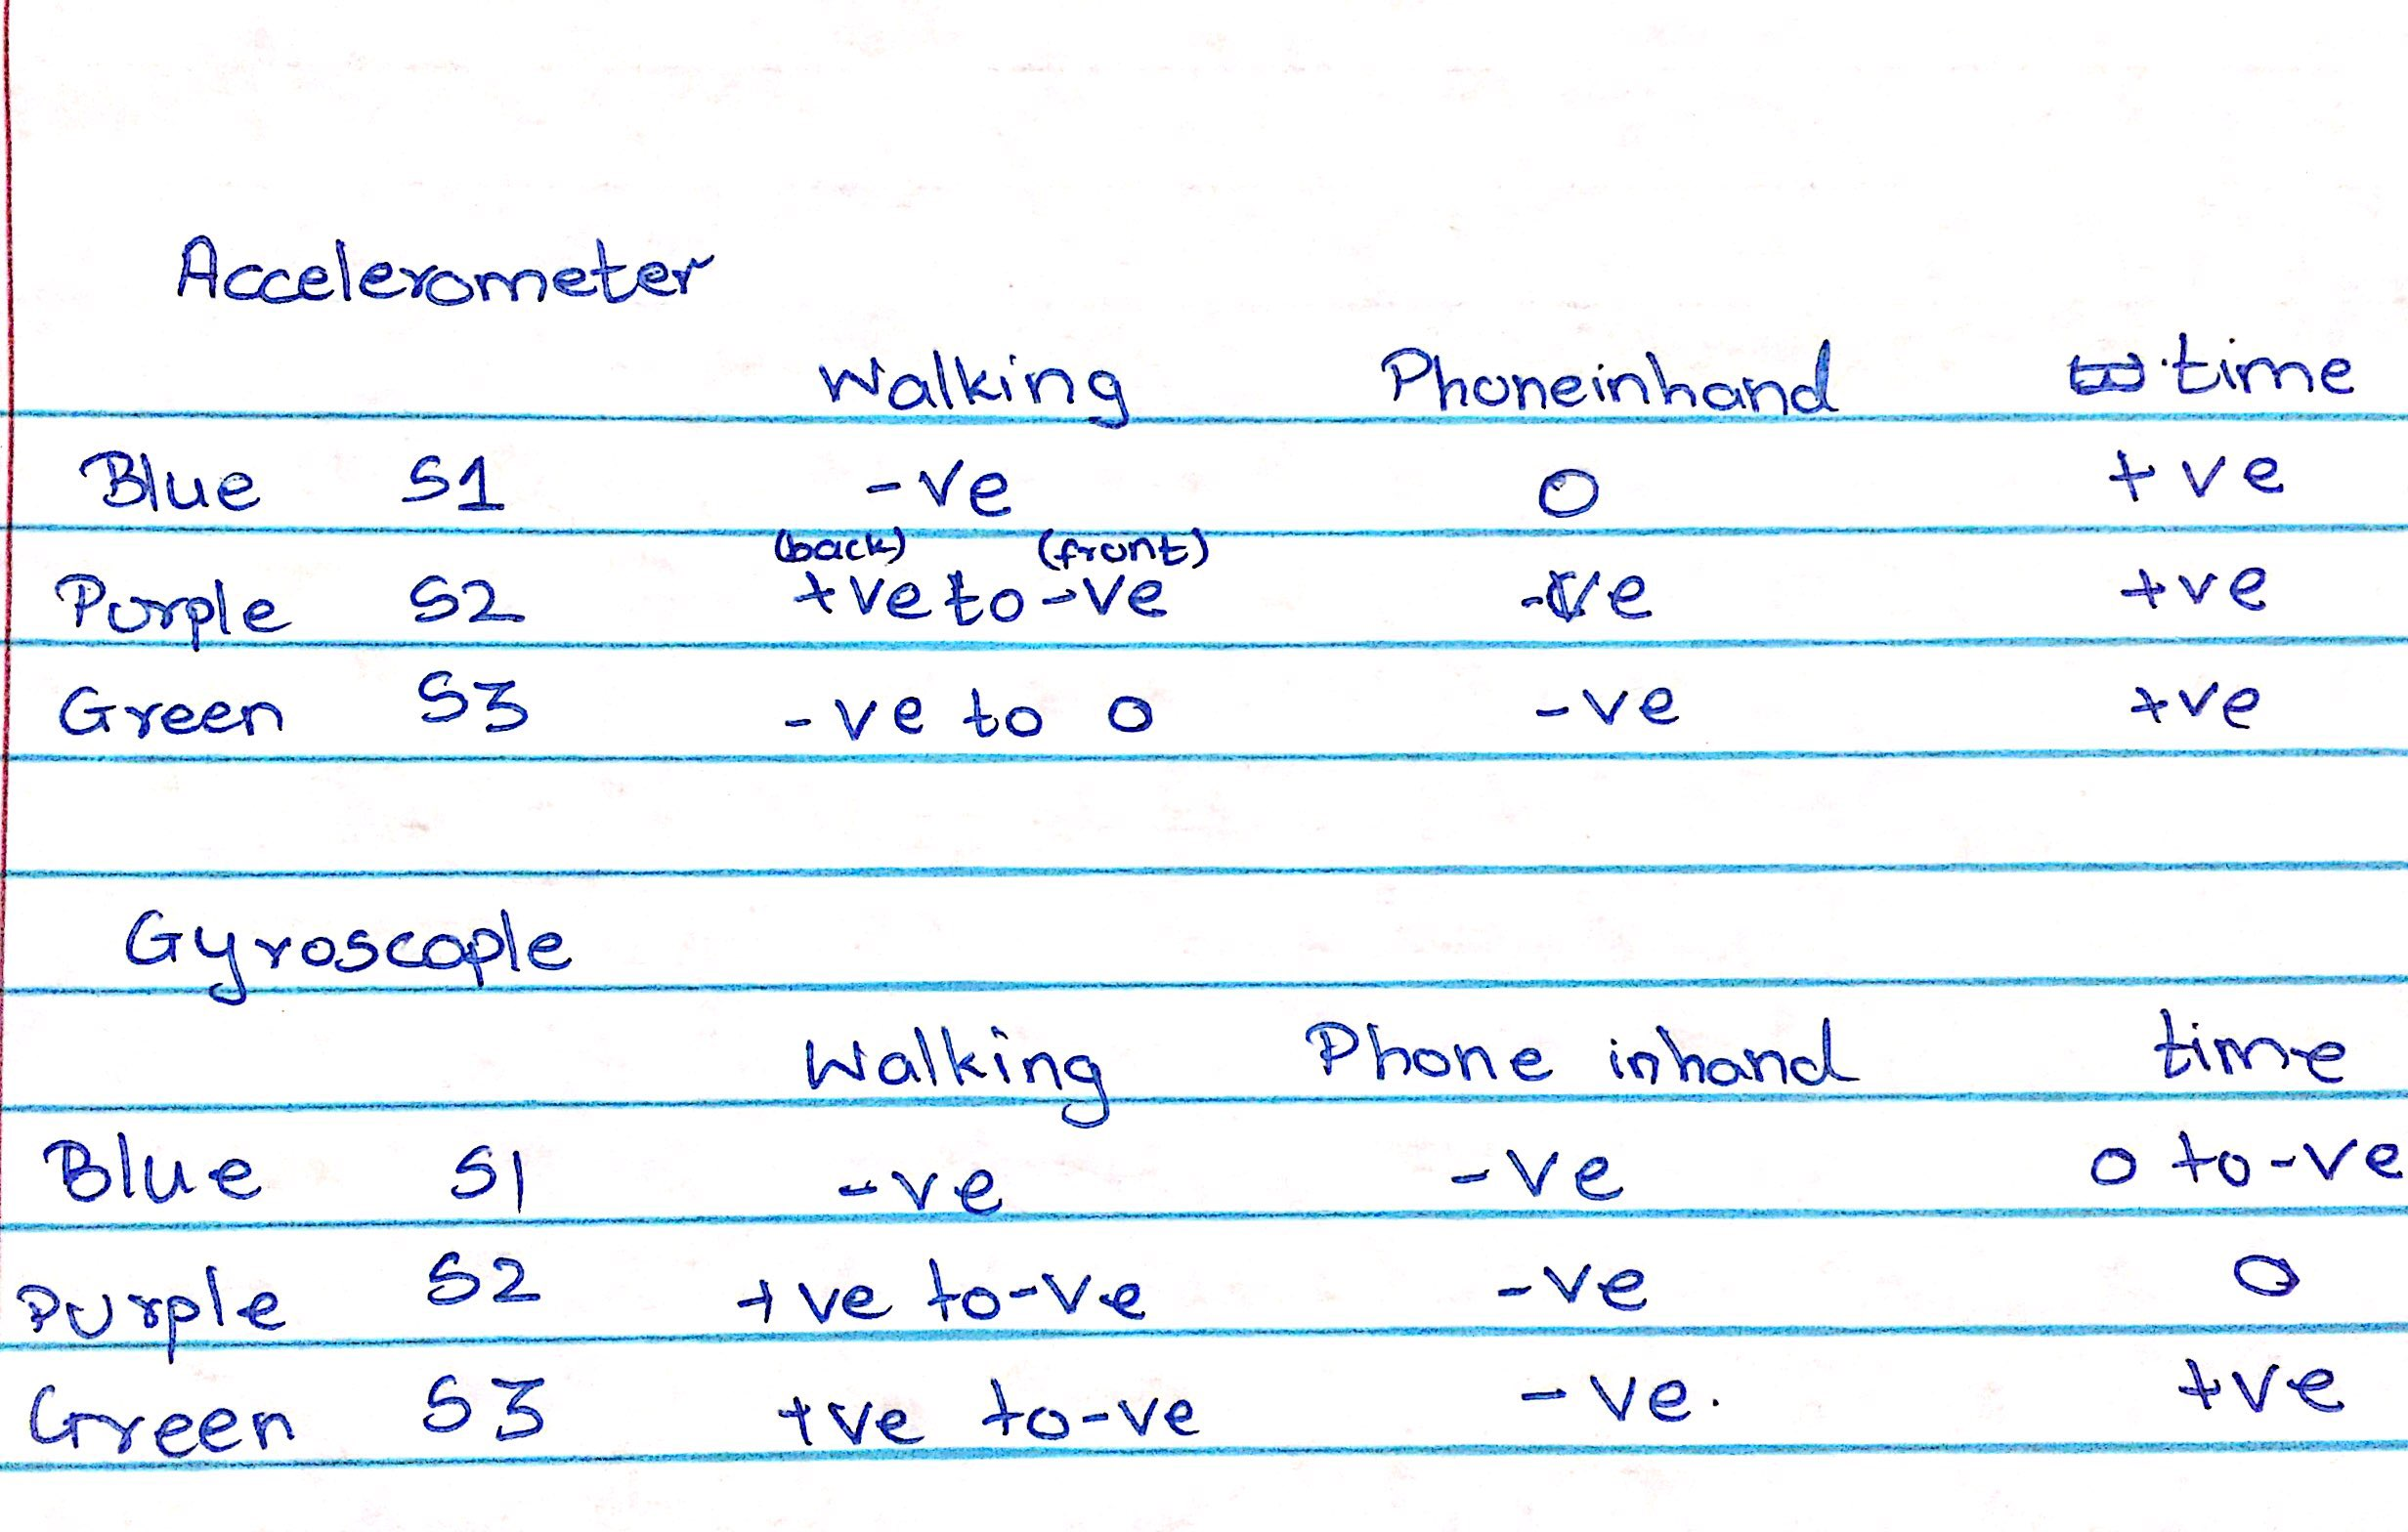 Accelerometer
Walking Phoneinhand time
Blue S1 -ve 0 +ve
(back) (front)
Purple S2 +ve to -ve -ve +ve
Green S3 -ve to 0 -ve +ve
Gyroscople
Walking Phone inhand time
Blue S1 -ve -ve 0 to -ve
Purple S2 +ve to -ve -ve 0
Green S3 +ve to -ve -ve. +ve